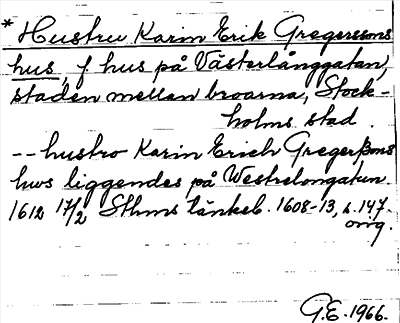 * Hustru Karin Erik Gregerssons
hus, f hus på Västerlånggatan,
staden mellan broarna, Stock-
holms stad.
-- hustro Karin Erich Gregerßons
hws liggendes på Westrelongatun.
1612 17/2 Sthms tänkeb. 1608-13, s. 147.
orig.
G.E. 1966.